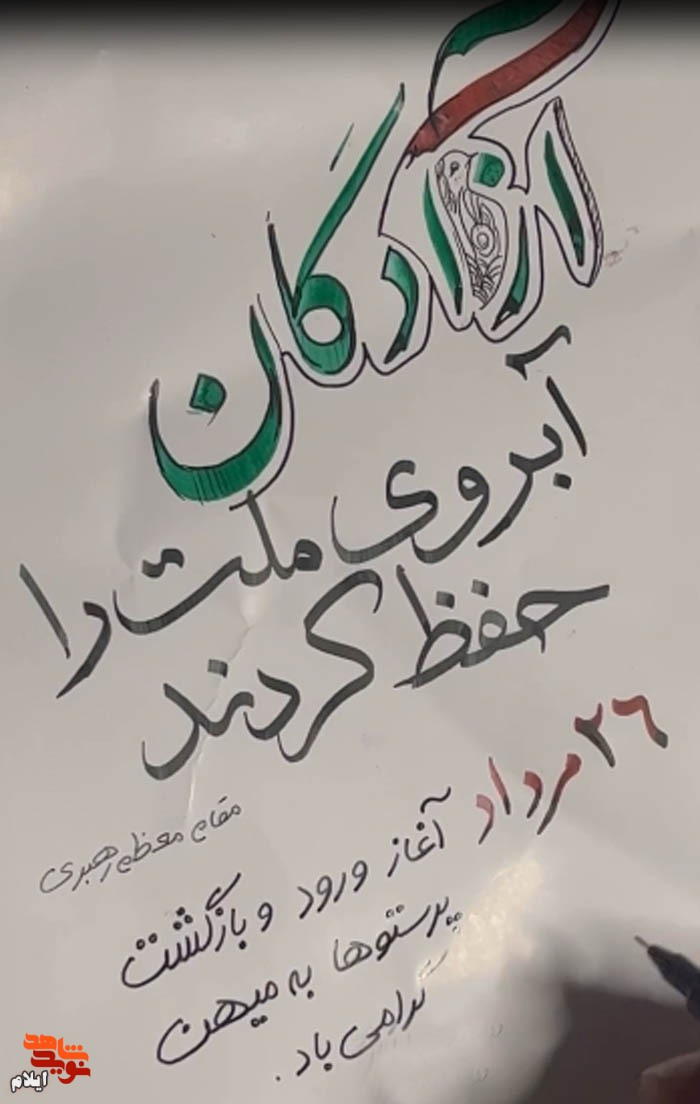 آزادگان
آبروی ملت را
حفظ کردند
مقام معظم رهبری
۲۶ مرداد آغاز ورود و بازگشت
پرستوها به میهن
گرامی باد.
نوید شاهد
ایلام